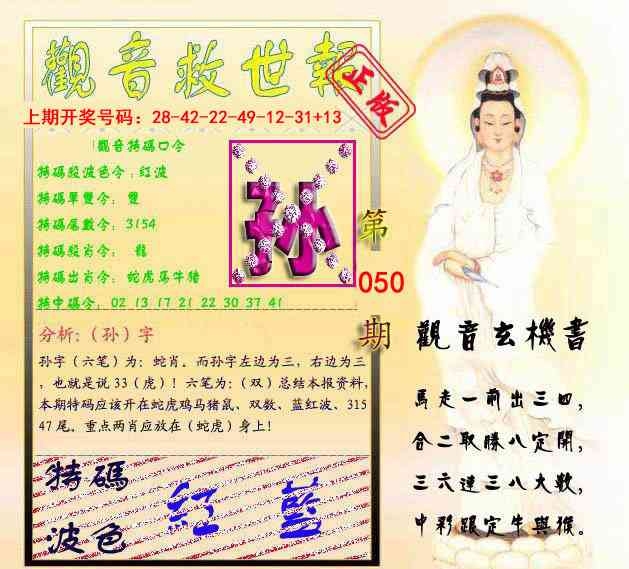 觀音救世報
正版
上期开奖号码：28-42-22-49-12-31+13
觀音特碼口令
特碼段波色令：红波
特碼單雙令：雙
特碼尾數令：3154
特碼段肖令：龍
特碼出肖令：蛇虎馬牛猪
特中碼令：02 13 17 21 22 30 37 41
孙
第
050
期
分析：（孙）字
孙字（六笔）为：蛇肖。而孙字左边为三，右边为三
，也就是说33（虎）！六笔为：（双）总结本报资料，
本期特码应该开在蛇虎鸡马猪鼠、双数、蓝红波、315
47尾。重点两肖应放在（蛇虎）身上！
特碼
波色
紅 藍
觀音玄機書
馬走一前出三四，
合二取勝八定開，
三六連三八大數，
中彩跟定牛與猴。